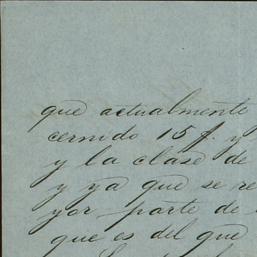 que actualmente
cernido 15 f. y
y la clase de
y ya que se re
yor parte de
que es del que